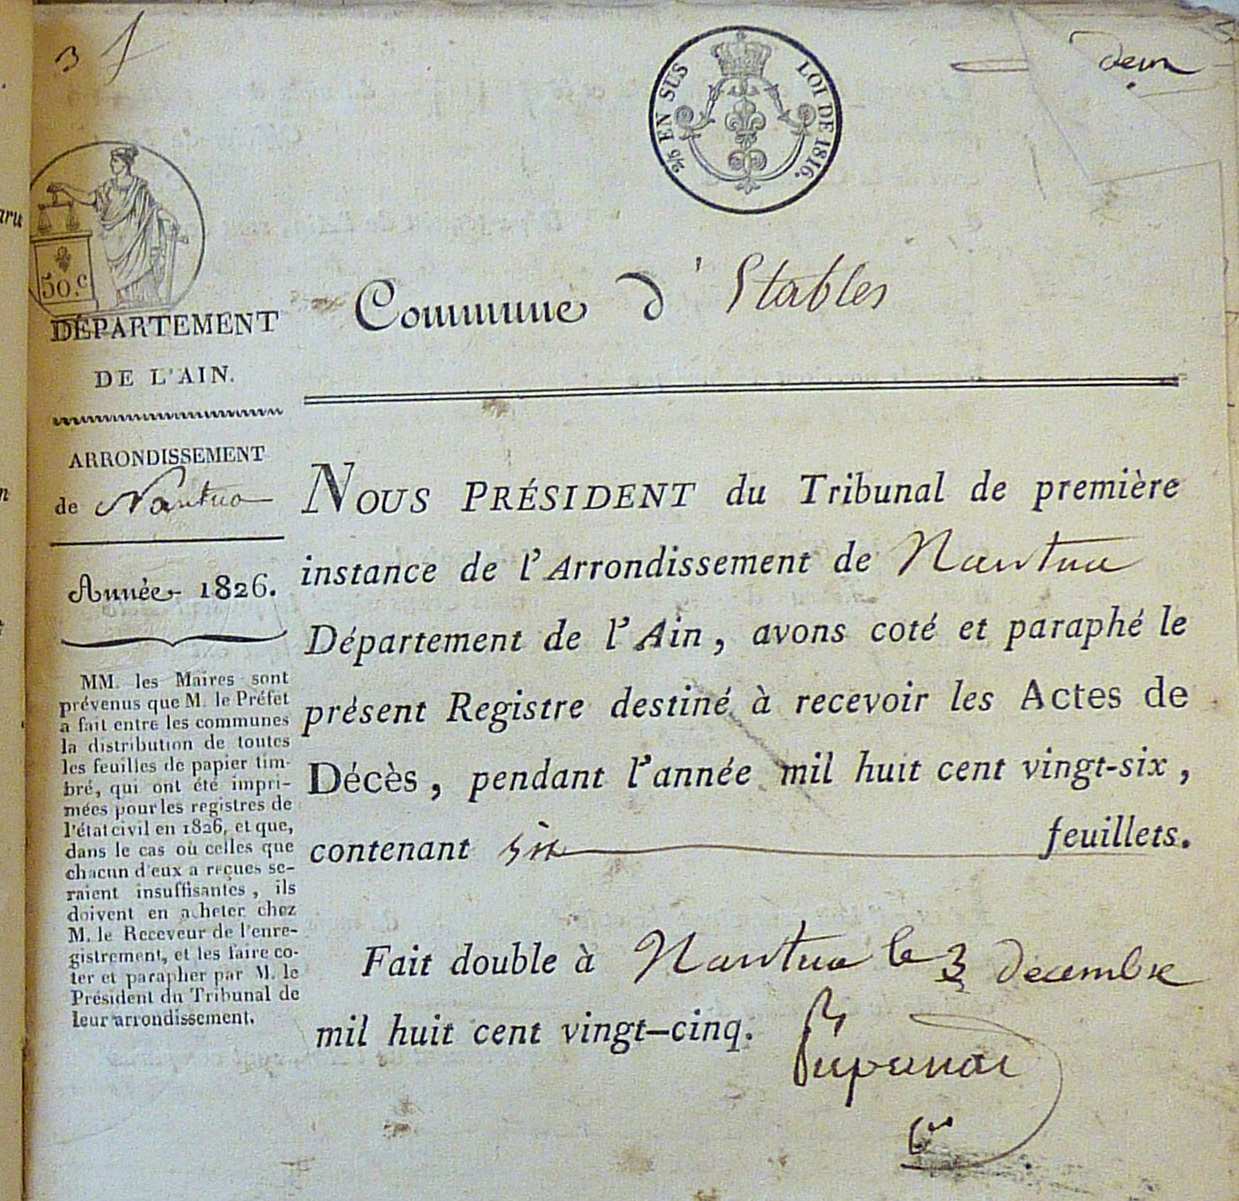 2/5 EN SUS LOI DE 1816.
50.c
Commune d'Etables
DÉPARTEMENT
DE L'AIN.
ARRONDISSEMENT
de Nantua
Année 1826.
MM. les Maires sont
prévenus que M. le Préfet
a fait entre les communes
la distribution de toutes
les feuilles de papier tim-
bré, qui ont été impri-
mées pour les registres de
l'état civil en 1826, et que,
dans le cas où celles que
chacun d'eux a reçues se-
raient insuffisantes, ils
doivent en acheter chez
M. le Receveur de l'enre-
gistrement, et les faire co-
ter et parapher par M. le
Président du Tribunal de
leur arrondissement.
NOUS PRÉSIDENT du Tribunal de première
instance de l'Arrondissement de Nantua
Département de l'Ain, avons coté et paraphé le
présent Registre destiné à recevoir les Actes de
Décès, pendant l'année mil huit cent vingt-six,
contenant six feuillets.
Fait double à Nantua le 3 décembre
mil huit cent vingt-cinq.